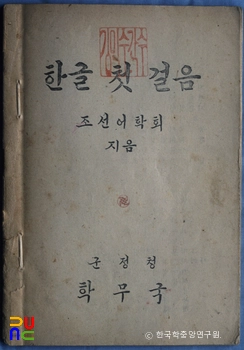 한글 첫 걸음
조선어학회
지음
군정청
학무국
© 한국학중앙연구원.